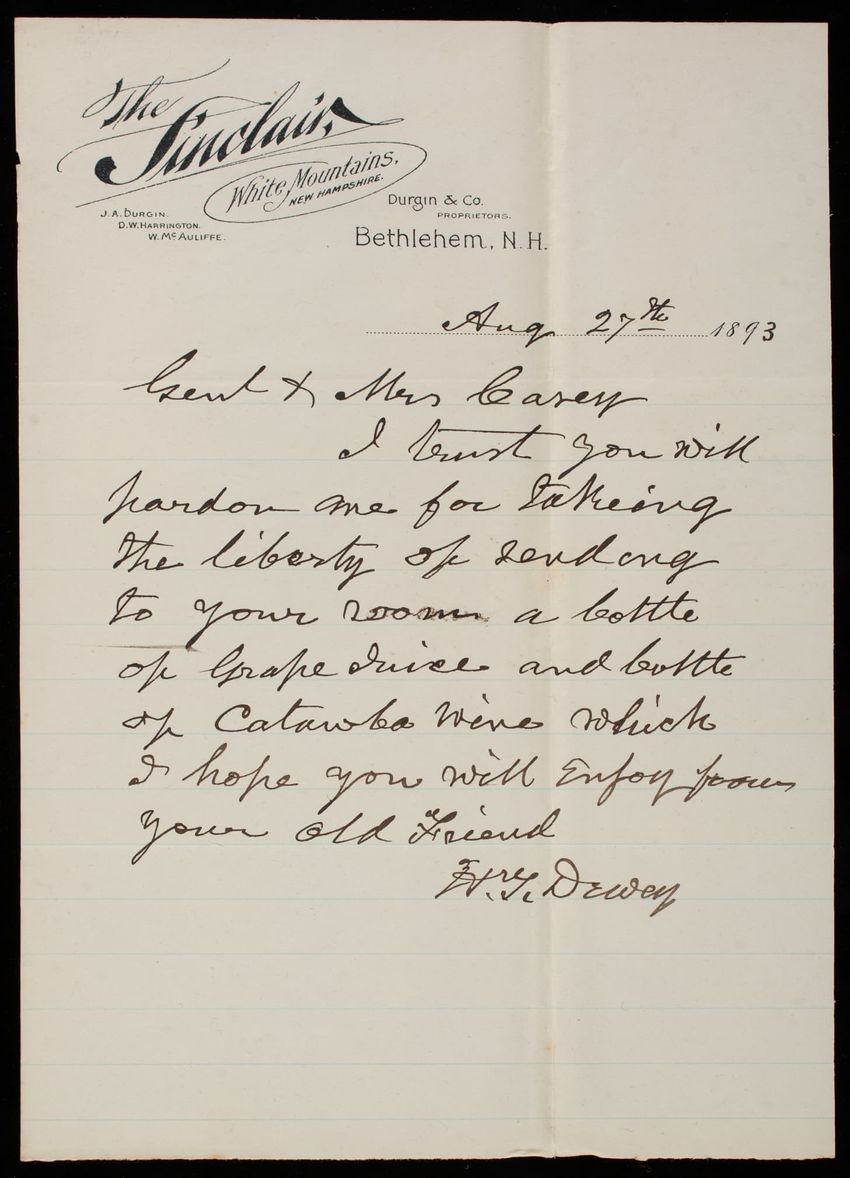 The Sinclair,
White Mountains,
NEW HAMPSHIRE.
J. A. DURGIN.
D. W. HARRINGTON.
W. McAULIFFE.
Durgin & Co.
PROPRIETORS.
Bethlehem, N.H.
Aug 27th 1893
Genl & Mrs Casey
I trust you will
pardon me for takeing
the liberty of sending
to your room a bottle
of Grape Juice and bottle
of Catawba Wine which
I hope you will Enjoy from
your old Friend
Dewey